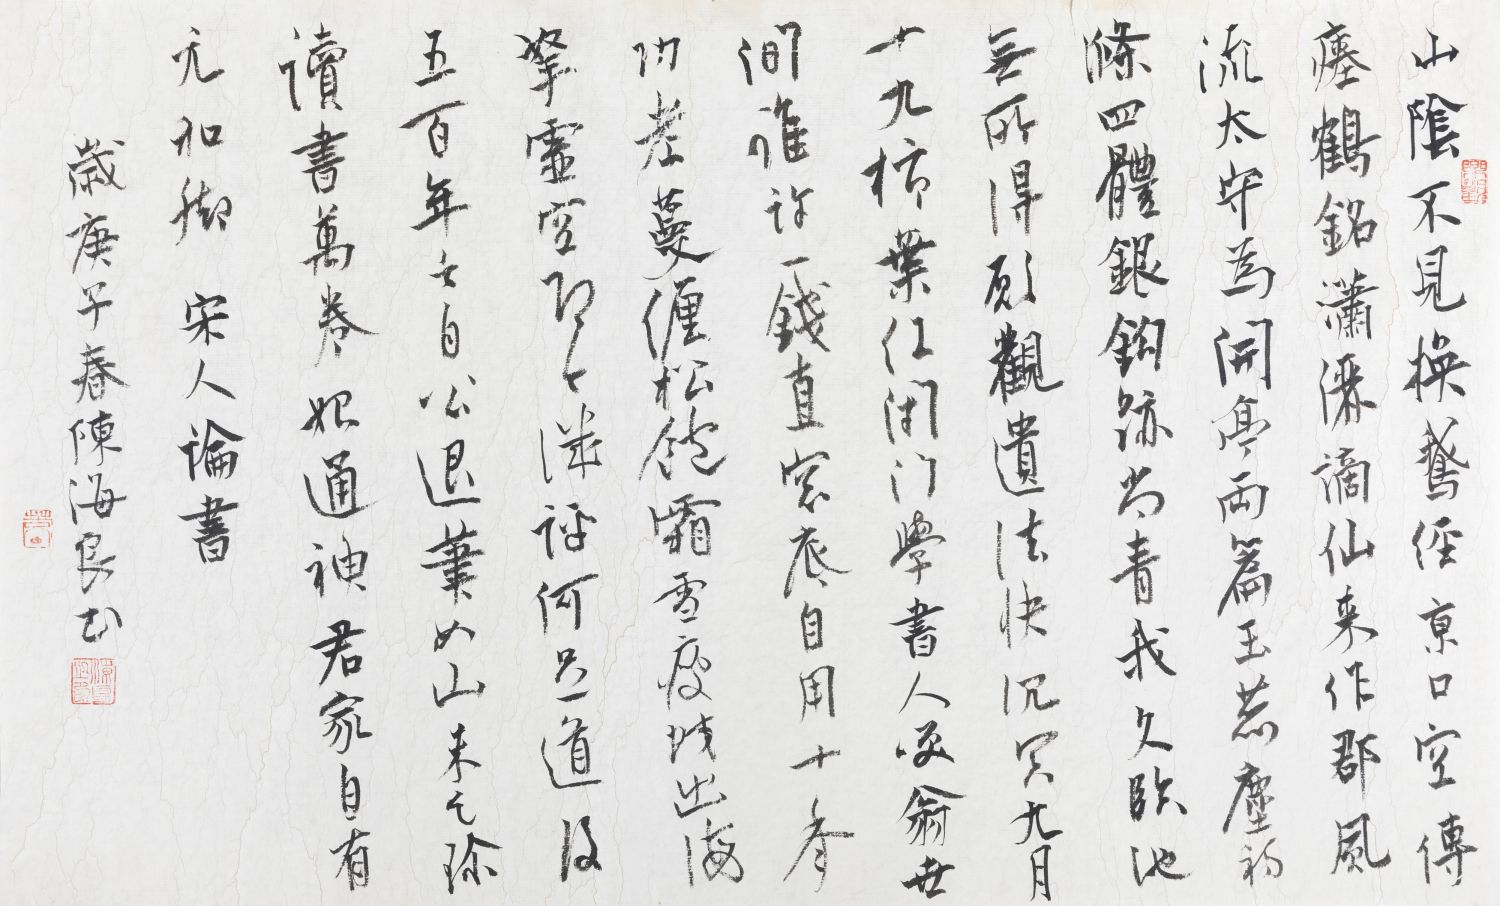 山陰不見換鵝經京口空傳
瘞鶴銘瀟灑謫仙来作郡風
流太守為開亭兩篇玉蕊塵初
滌四體銀鈎跡尚青我久臨池
無所得願觀遺法快沉冥九月
十九柿葉红閉门學書人咲翁世
间誰许一錢直窓底自用十季
功老蔓纏松飽霜雪瘦蛟出海
拏虚空即今譏評何足道後
五百年言自公退筆如山未足珍
讀書萬卷始通神君家自有
元和脚 宋人論書
歲庚子春陳海良书